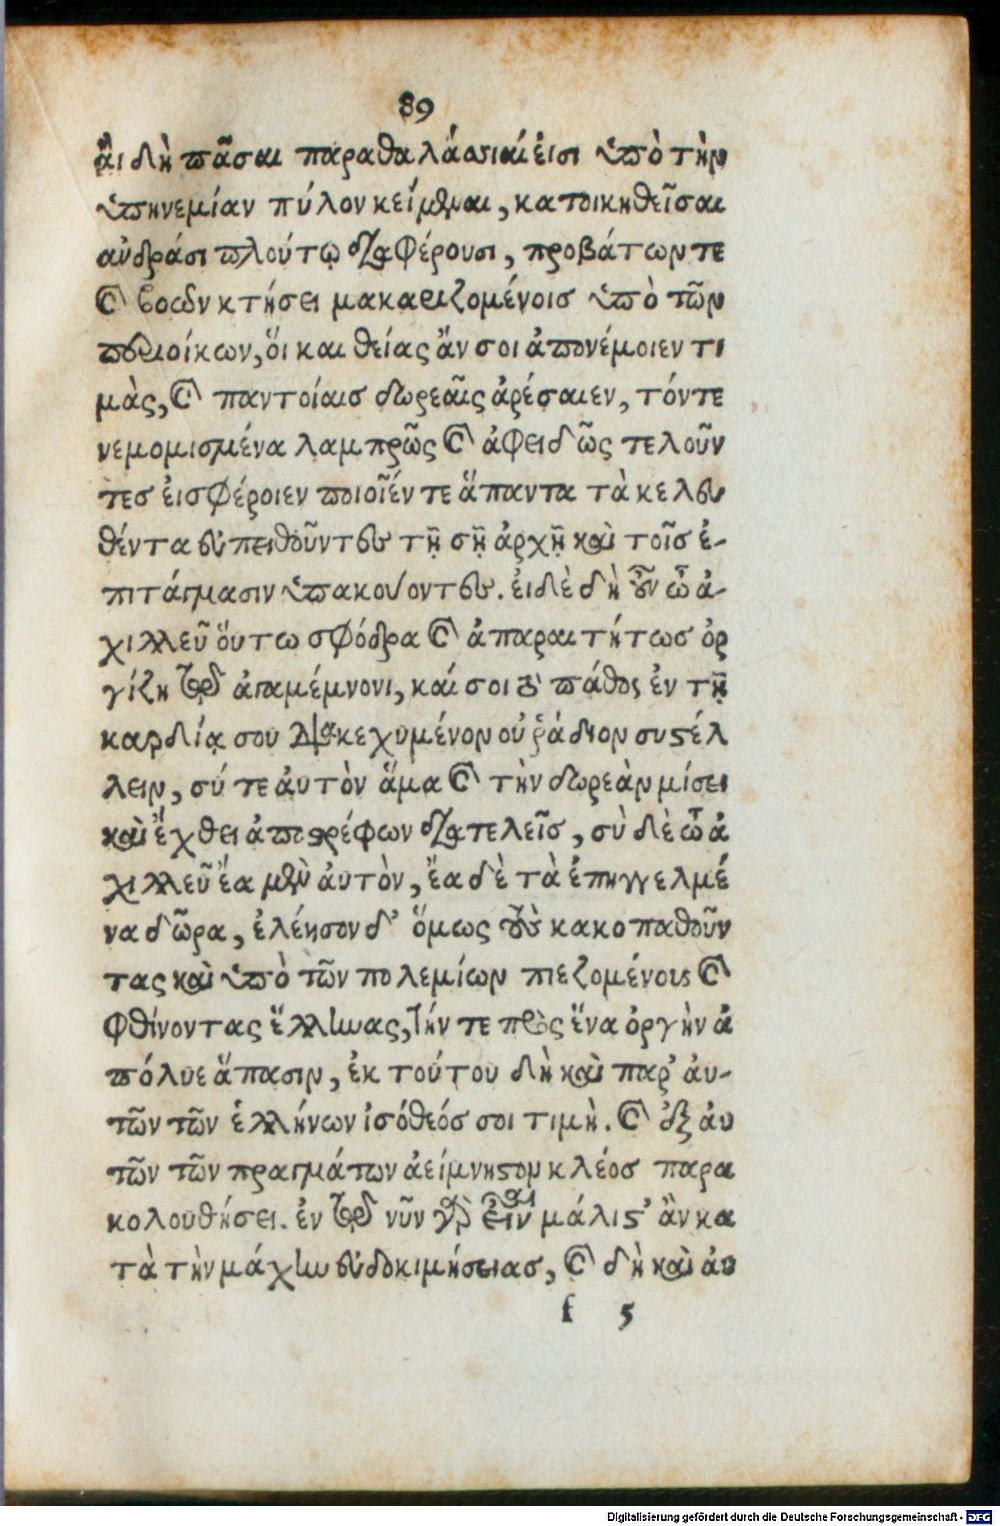 89
ἅι δὴ πᾶσαι παραθαλάσσιαί εἰσι ὑπὸ τὴν
ὑπηνεμίαν πύλον κείμεναι, κατοικηθεῖσαι
ἀνδράσι πλούτῳ διαφέρουσι, προβάτων τε
καὶ βοῶν κτήσει μακαριζομένοις ὑπὸ τῶν
περιοίκων, ὅι και θείας ἄν σοι ἀπονέμοιεν τι
μὰς, καὶ παντοίαις δωρεαῖς ἀρέσαιεν, τόντε
νεμομισμένα λαμπρῶς καὶ ἀφειδῶς τελοῦν
τες ἐισφέροιεν ποιοῖέν τε ἅπαντα τὰ κελευ
θέντα εὐπειθοῦντες τῇ σῇ ἀρχῇ καὶ τοῖς ἐ-
πιτάγμασιν ὑπακούοντες. ἐι δὲ δὴ οὖν ὦ ἀ-
χιλλεῦ ὅυτω σφόδρα καὶ ἀπαραιτήτως ὀρ
γίζῃ τῷ ἀγαμέμνονι, καί σοι τὸ πάθος ἐν τῇ
καρδίᾳ σου διακεχυμένον οὐ ῥάδιον συστέλ
λειν, σύ τε ἀυτὸν ἅμα καὶ τὴν δωρεὰν μίσει
καὶ ἔχθει ἀποστρέφων διατελεῖς, σὺ δὲ ὦ ἀ
χιλλεῦ ἔα μὲν ἀυτὸν, ἔα δὲ τὰ ἐπηγγελμέ
να δῶρα, ἐλέησον δ' ὅμως τοὺς κακοπαθοῦν
τας καὶ ὑπὸ τῶν πολεμίων πιεζομένους καὶ
φθίνοντας ἕλληνας, τήν τε πρὸς ἕνα ὀργὴν ἀ
πόλυε ἅπασιν, ἐκ τούτου δὴ καὶ παρ' ἀυ-
τῶν τῶν ἑλλήνων ἰσόθεός σοι τιμὴ. καὶ ἐξ ἀυ
τῶν τῶν πραγμάτων ἀείμνηστον κλέος παρα
κολουθήσει. ἐν τῷ νῦν γὰρ εἶναι μάλιστ' ἂν κα
τὰ τὴν μάχην εὐδοκιμήσειας, καὶ δὴ καὶ ἀυ
f 5
Digitalisierung gefördert durch die Deutsche Forschungsgemeinschaft - DFG